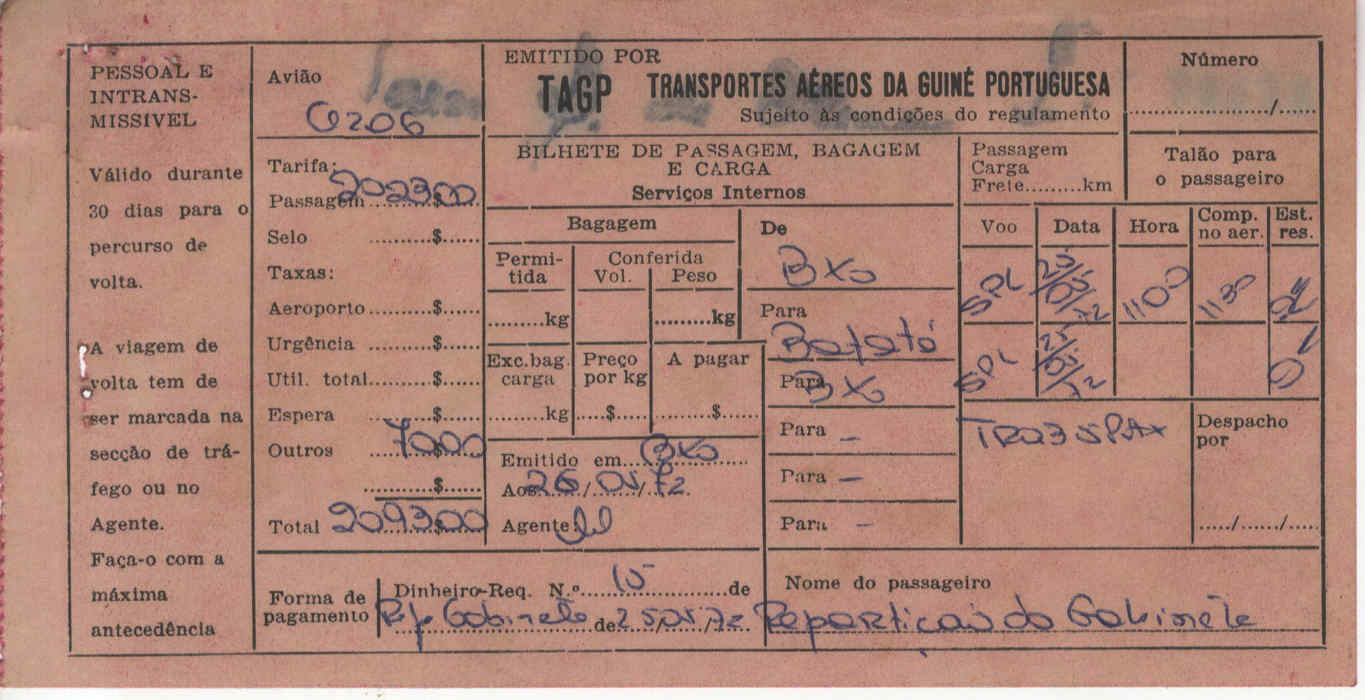 PESSOAL E
INTRANS-
MISSIVEL
Válido durante
30 dias para o
percurso de
volta.
A viagem de
volta tem de
ser marcada na
secção de trá-
fego ou no
Agente.
Faça-o com a
máxima
antecedência
Avião
Tarifa:
Passagem 202300
Selo ..........$......
Taxas:
Aeroporto ..........$......
Urgência ..........$......
Util. total ..........$......
Espera ..........$......
Outros 7000
..........$......
Total 209300
EMITIDO POR
TAGP TRANSPORTES AÉREOS DA GUINÉ PORTUGUESA
Sujeito às condições do regulamento
BILHETE DE PASSAGEM, BAGAGEM
E CARGA
Serviços Internos
Bagagem
Permi-
tida
Conferida
Vol. Peso
.........kg .........kg
Exc.bag.
carga
Preço
por kg
A pagar
.........kg ....$..... .......$......
Emitido em Bxo
Aos 26/05/72
Agente
De
Bxo
Para
Bafatá
Para
Bxo
Para –
Para –
Para –
Passagem
Carga
Frete.........km
Número
..................../.....
Talão para
o passageiro
Voo Data Hora Comp.
no aer. Est.
res.
SPL 25/05/72 1100 1130 OK
SPL 25/05/72 OK
Despacho
por
...../....../.....
Forma de
pagamento
Dinheiro-Req. N.º 15 de
Rep Gabinete de 25/05/72
Nome do passageiro
Repartição do Gabinete